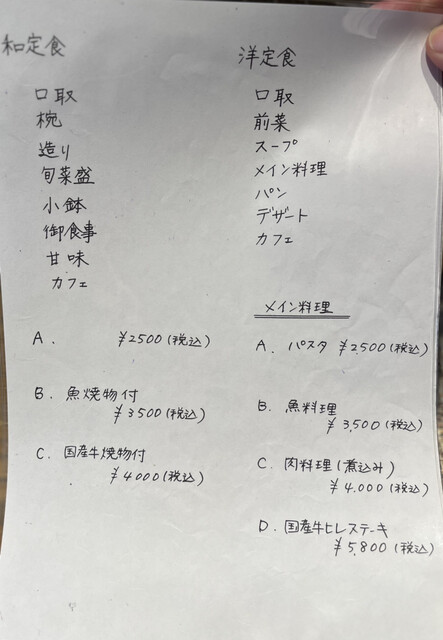 和定食
口取
椀
造り
旬菜盛
小鉢
御食事
甘味
カフェ
A. ¥2500(税込)
B. 魚焼物付
¥3500(税込)
C. 国産牛焼物付
¥4000(税込)
洋定食
口取
前菜
スープ
メイン料理
パン
デザート
カフェ
メイン料理
A. パスタ ¥2500(税込)
B. 魚料理
¥3,500(税込)
C. 肉料理(煮込み)
¥4,000(税込)
D. 国産牛ヒレステーキ
¥5,800(税込)